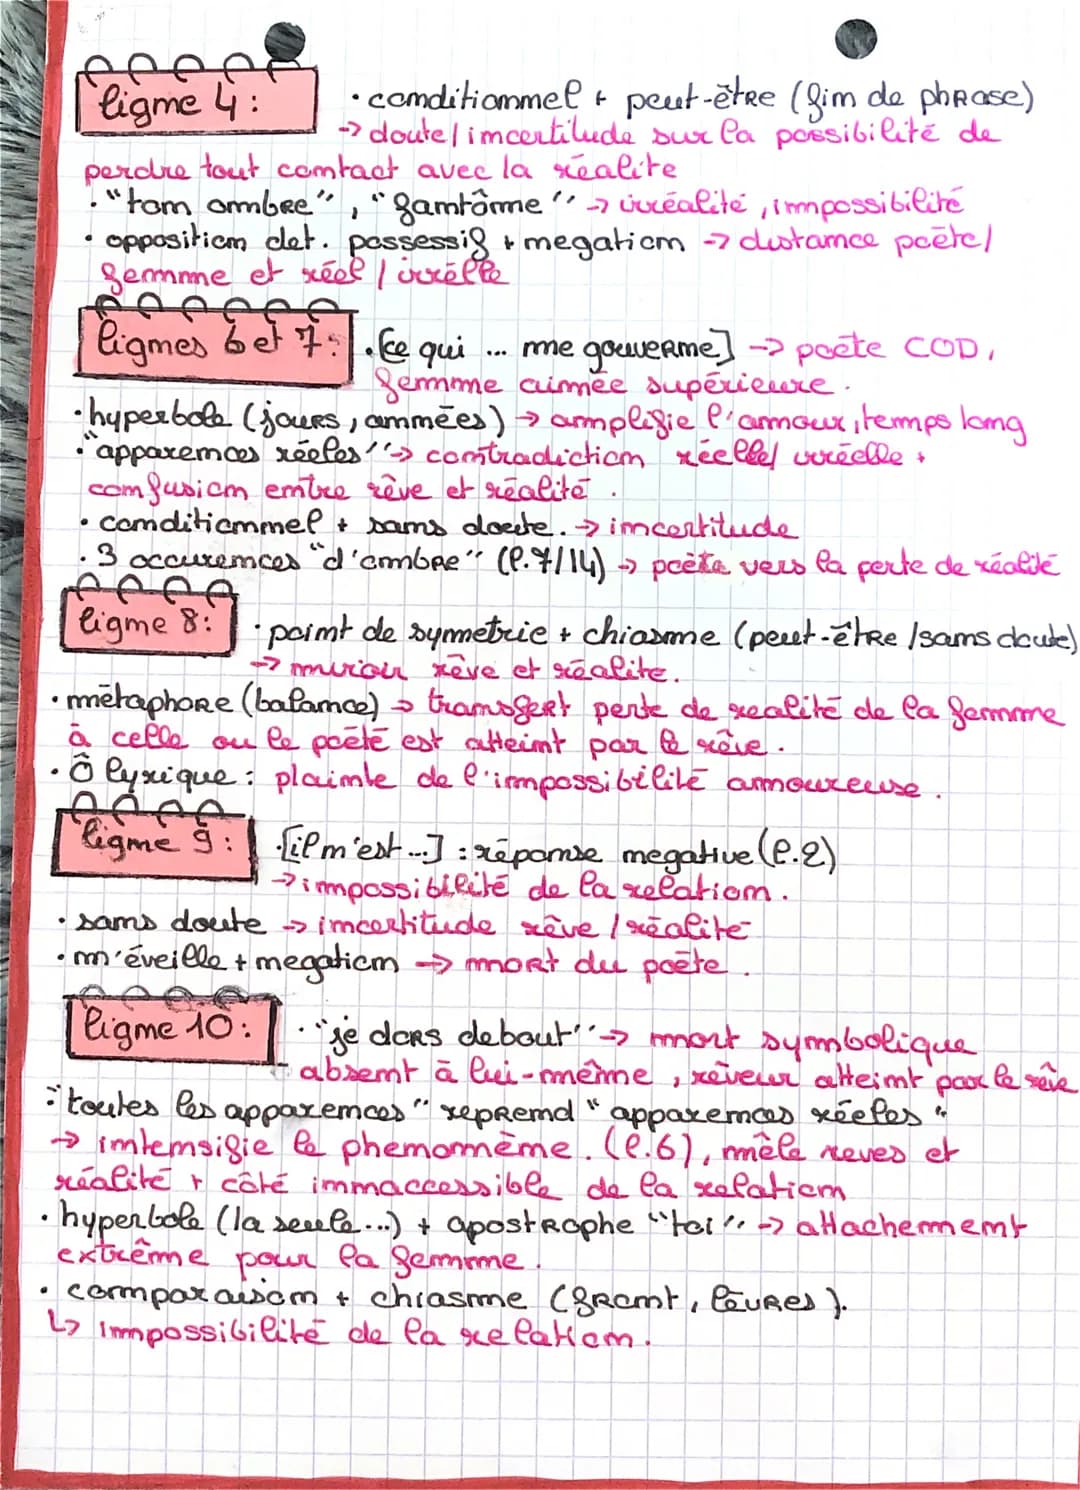 ligne 4 :
• conditionnel + peut-être (fin de phrase)
-> doute / incertitude sur la possibilité de
perdre tout contact avec la réalite
• "ton ombre", "fantôme" -> irréalité, impossibilité
• opposition det. possessif + negation -> distance poète/
femme et réel / irrélle
lignes 6 et 7 :
• [ce qui ... me gouverne] -> poète COD,
femme aimée supérieure.
• hyperbole (jours, années) -> amplifie l'amour, temps long
• "apparences réeles" -> contradiction réelle / irréelle +
confusion entre rêve et réalité.
• conditionnel + sans doute. -> incertitude
• 3 occurences "d'ombre" (l.7/14) -> poète vers la perte de réalité
ligne 8 :
• point de symetrie + chiasme (peut-être / sans doute)
-> miroir rêve et réalite.
• métaphore (balance) -> transfert perte de realité de la femme
à celle ou le poète est atteint par le rêve.
• Ô lyrique : plainte de l'impossibilité amoureuse.
ligne 9 :
• [il m'est ...] : réponse negative (l.2)
-> impossibilité de la relation.
• sans doute -> incertitude rêve / réalité
• m'éveille + negation -> mort du poète.
ligne 10 :
• "je dors debout" -> mort symbolique
absent à lui-même, rêveur atteint par le rêve
• "toutes les apparences" reprend "apparences réeles"
-> intensifie le phenomème. (l.6), mêle reves et
réalité + côté innaccessible de la relation
• hyperbole (la seule...) + apostrophe "toi" -> attachement
extrême pour la femme.
• comparaison + chiasme (front, lèvres).
↳ impossibilité de la relation.